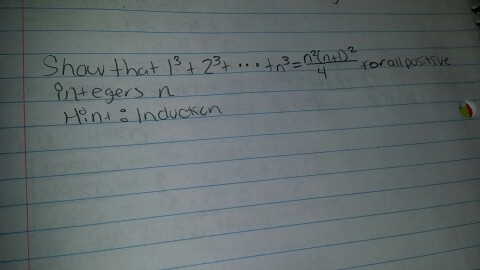 Show that 1³ + 2³ + ... + n³ = n²(n+1)²/4 for all positive
integers n
Hint: Induction